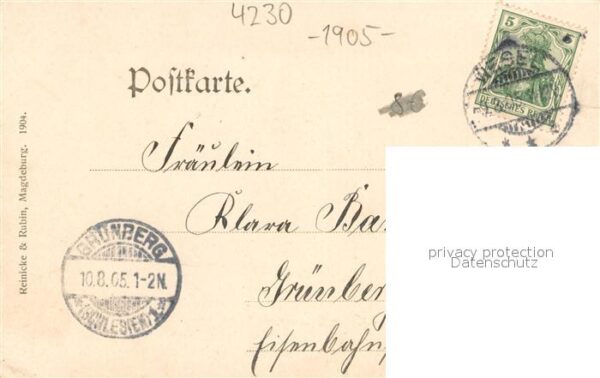 4230
-1905-
5
DEUTSCHES REICH
Postkarte.
Fräulein
Klara Ba
Grünber
Eisenbahn
Reinicke & Rubin, Magdeburg. 1904.
GRÜNBERG
10.8.05.1-2N.
(SCHLESIEN) 1.
privacy protection
Datenschutz